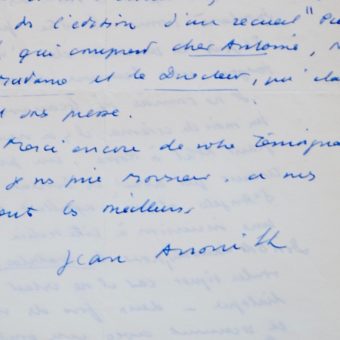 de l'édition d'un recueil "
qui comprend cher Antoine,
Madame et le Directeur, qui
ont
Merci encore de votre témoigna
prie Monsieur, à mes
ent les meilleurs,
Jean Anouilh